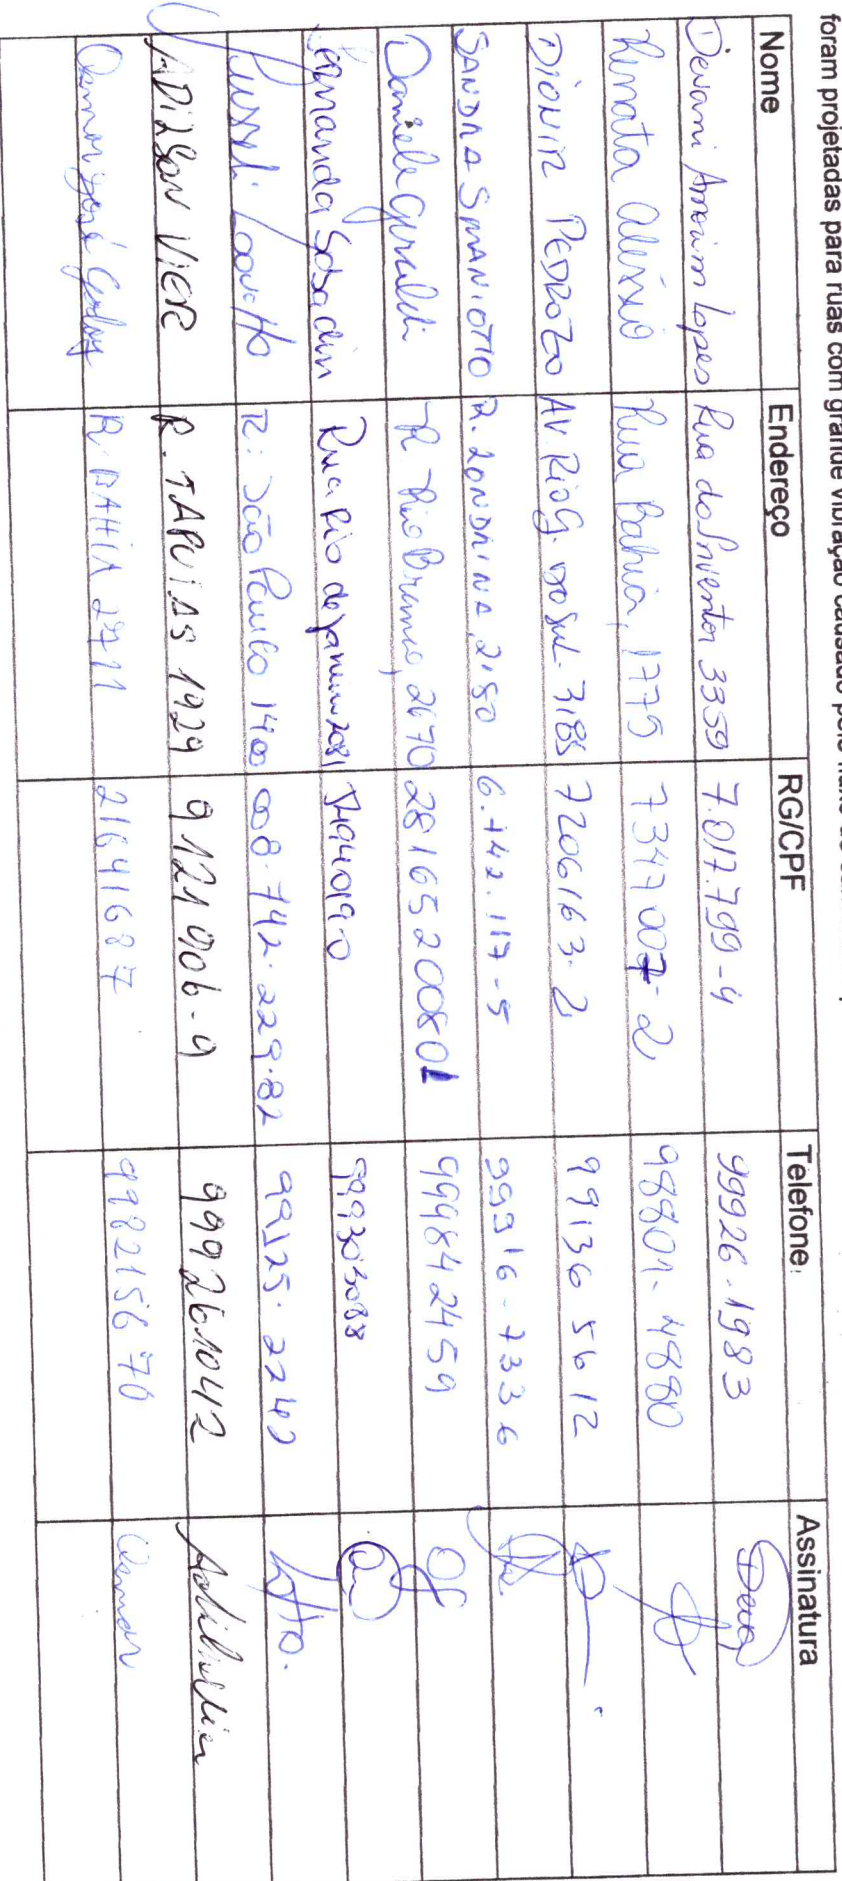 foram projetadas para ruas com grande vibração causado pelo
Nome Endereço RG/CPF Telefone Assinatura
Devani Amorim Lopes Rua do Inventor 3359 7.017.799-4 99926-1983 Deva
Renata Aléssio Rua Bahia, 1775 7347007-2 98801-4880
DIONIR PEDROZO AV. Rio G. do Sul - 3185 7206163-2 99136 5612
SANDRA SMANIOTTO R. LONDRINA, 2150 6.742.117-5 99916-7336
Daniele Giraldi R Rio Branco, 2670 28165200801 999842459
Fernanda Sabadin Rua Rio de Janeiro 2081 999303088
R: São Paulo 1400 008.742.229.82 99125-2242
ADILSON VIER R. TAPUIAS 1929 9121906-9 999261042
Osmar José Godoy R. BAHIA 2711 21641687 998215670 Osmar